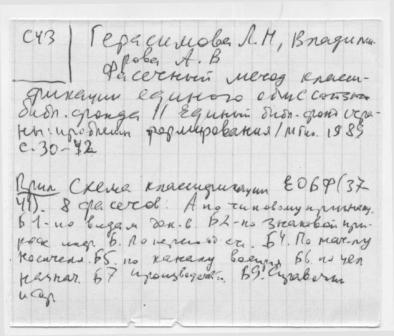 С43
Герасимова Л.Н, Владими-
рова А.В
Фасетный метод класси-
фикации единого
библ. фонда // Единый библ. фонд стра-
ны: проблемы формирования / М
с. 30-42
Прил Схема классификации ЕОБФ (37
41). 8 фасетов. А по типовому признаку.
Б1-по видам док.в. Б2-по знаковой при-
роде инф. Б. По период сти. Б4. По мат-му
носителю. Б5. по каналу восприят Б6. по цел
назнач. Б7 производств. Справочн